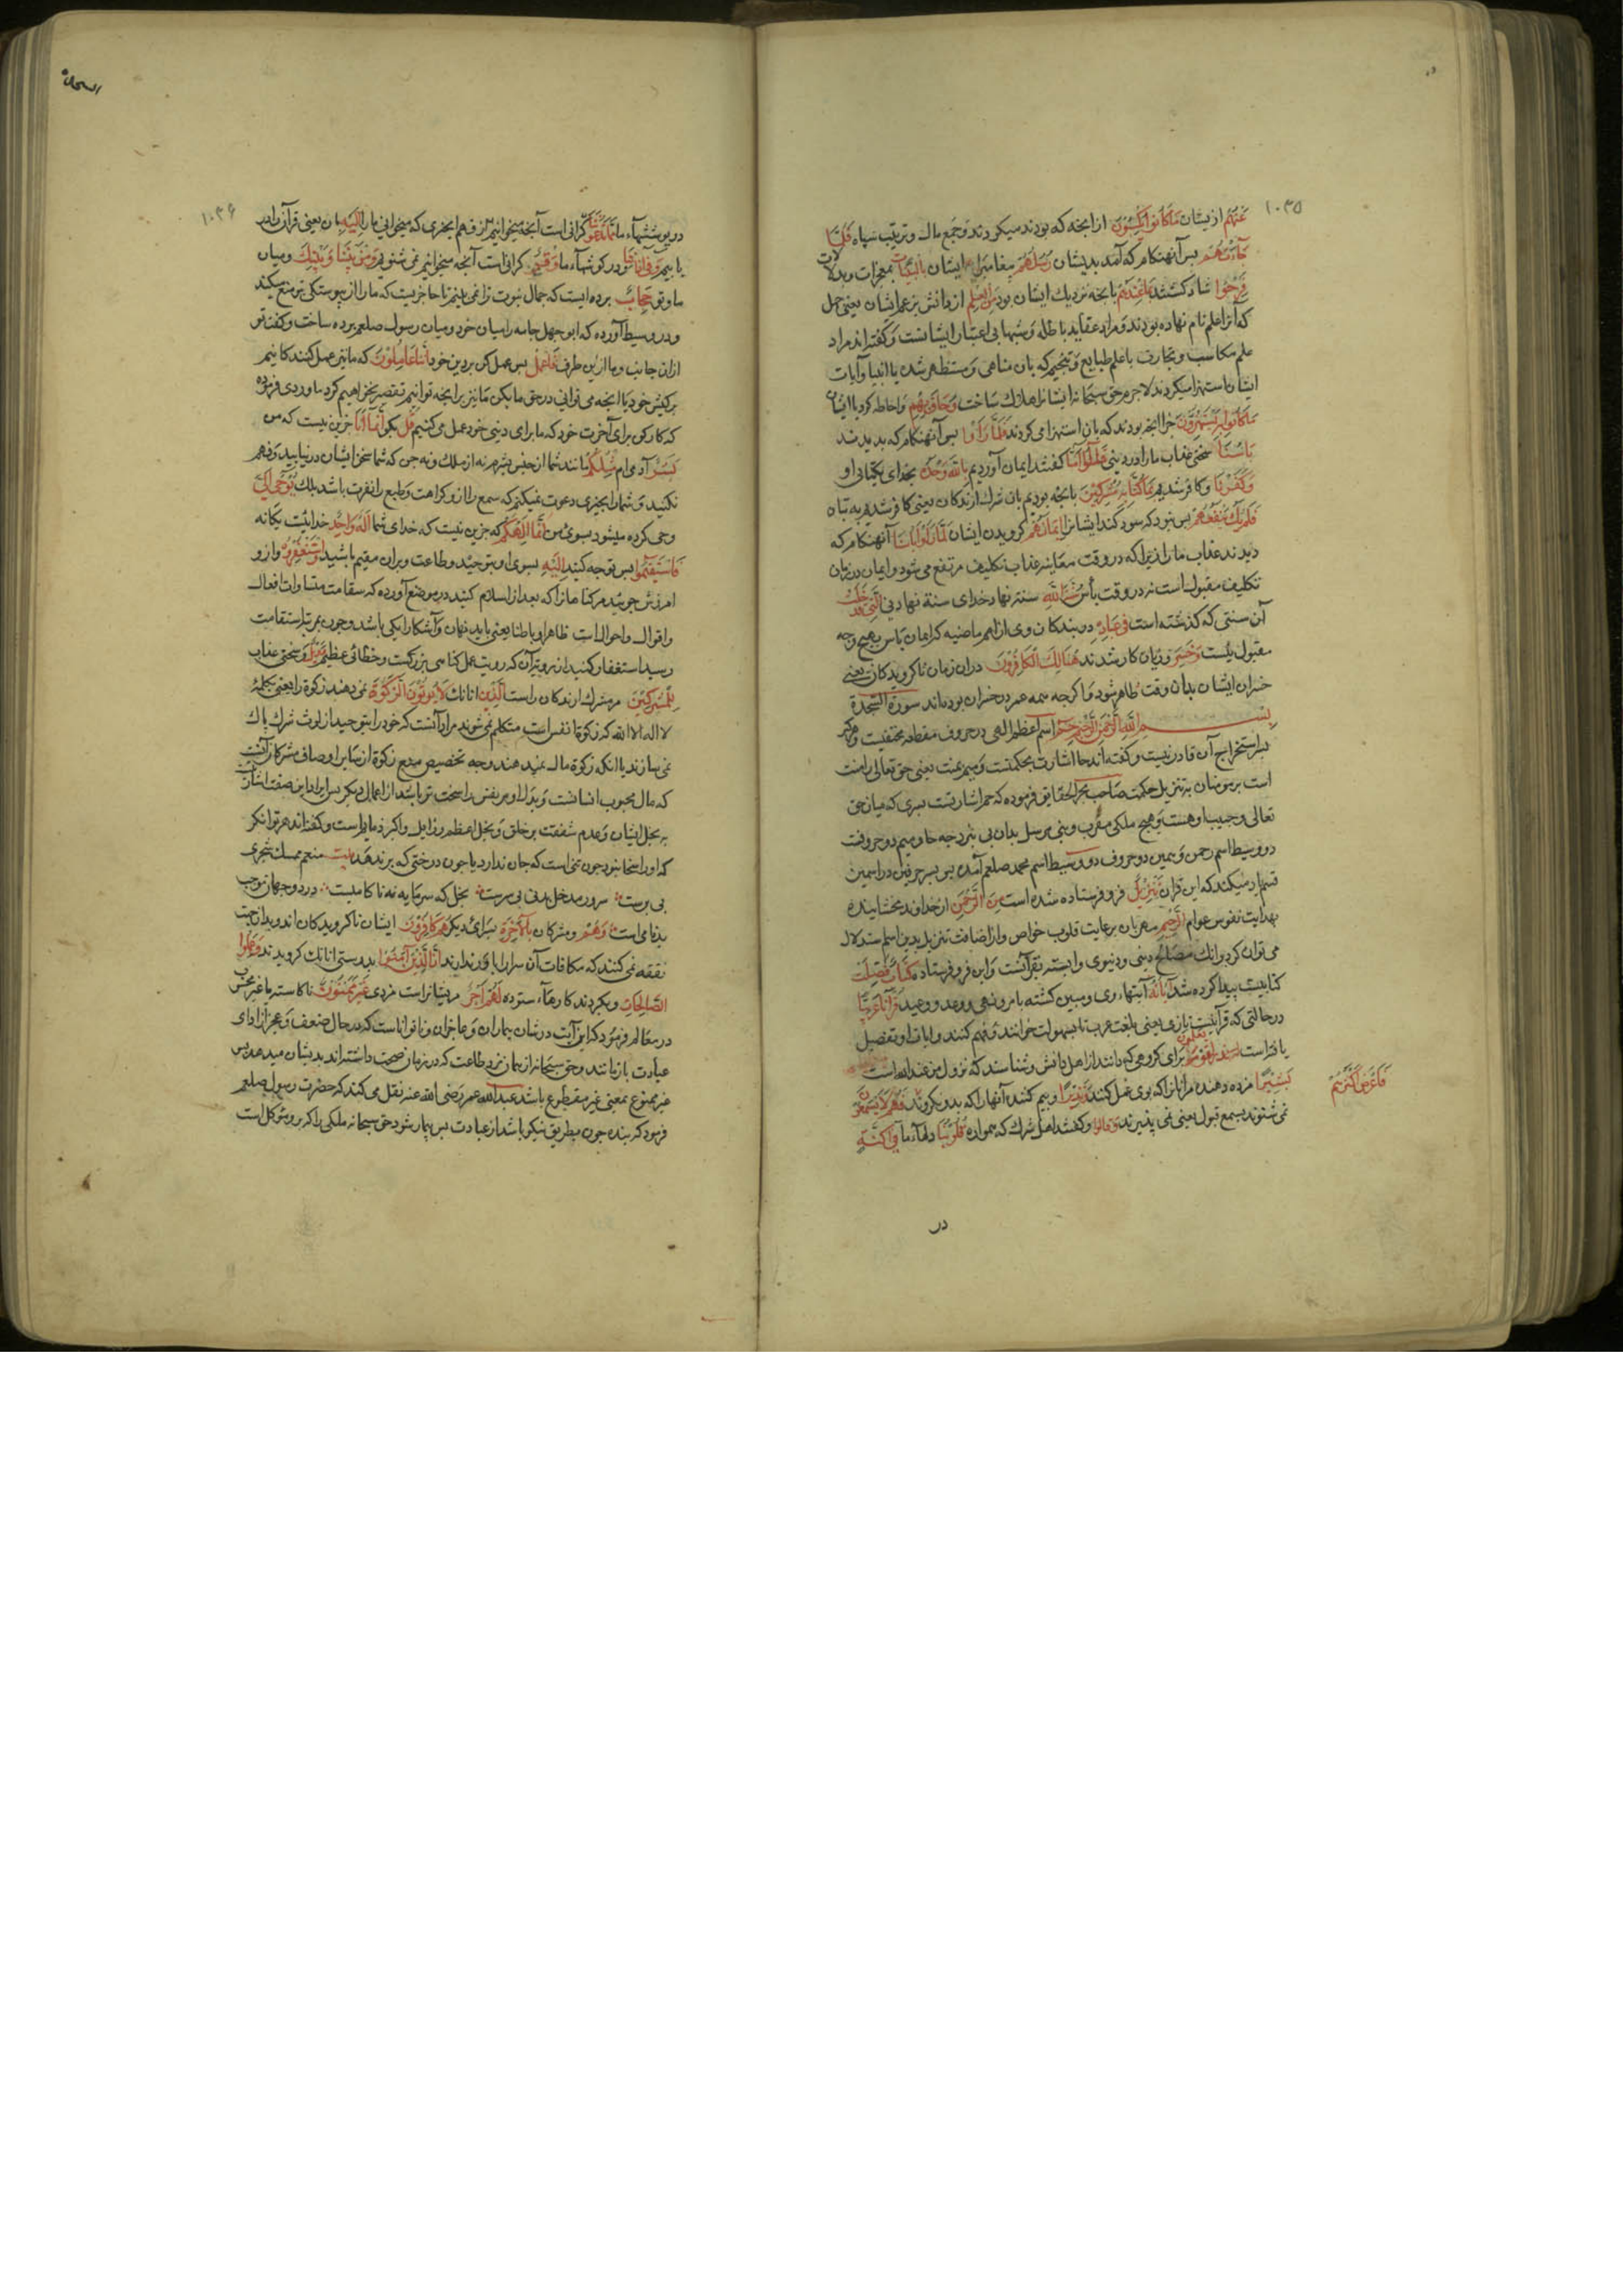 ۱۰۳۵
عَنْهُم از یشان مَا كَانُوا يَكْسِبُونَ از آنجه که بودند میکردند و جمع مال و ترتیب سپاه فَلَمَّا
جَآءَتْهُمْ پس آنهنکام که آمد بدیشان رُسُلُهُم پیغامبران ایشان بِالْبَيِّنَاتِ بمعجزات و بدلالات
فَرِحُوا شاد کشتند بِمَا عِنْدَهُمْ بانجه نزدیك ایشان بود مِنَ الْعِلْمِ از دانش بزعم ایشان یعنی جهل
که آنرا علم نام نهاده بودند و مراد عقاید باطله و شبهای بی اعتبار ایشانست و کفته اند مراد
علم مکاسب و تجارت یا علم طبایع و تنجیم که بان مباهی و مستظهر شدن با انبیا و آیات
ایشان استهزا میکردند لاجرم حق سبحانه ایشانرا هلاك ساخت وَحَاقَ بِهِم و احاطه کرد با ایشان
مَا كَانُوا بِهِ يَسْتَهْزِؤُنَ جزا آنجه بودند که بان استهزا می کردند فَلَمَّا رَاَوْا پس آنهنکام که بدیدند
بَأْسَنَا سختی عذاب ما را در دنیی قَالُوا آمَنَّا کفتند ایمان آوردیم بِاللّهِ وَحْدَهُ بخدای بیکتایی او
وَكَفَرْنَا و کافر شدیم بِمَا كُنَّا بِهِ مُشْرِكِينَ بانجه بودیم بان شرك آرندکان یعنی کافر شدیم به بتان
فَلَمْ يَكُ يَنْفَعُهُمْ پس نبود که سود کند ایشانرا اِيمَانُهُمْ کرویدن ایشان لَمَّا رَاَوْا بَأْسَنَا آنهنکام که
دیدند عذاب ما را زیرا که در وقت معاینه عذاب تکلیف مرتفع می شود و ایمان در زمان
تکلیف مقبولست نه در وقت بأس سُنَّتَ اللّهِ سنت نهاد خدای سنة نهادنی الَّتِي قَدْ خَلَتْ
آن سنتی که کذشته است فِي عِبَادِهِ در بندکان وی از امم ماضیه که ایمان یاس بهیج وجه
مقبول نیست وَخَسِرَ و زیان کار شدند هُنَالِكَ الْكَافِرُونَ دران زمان ناکرویدکان یعنی
خسران ایشان بدان وقت ظاهر شود و اکرجه همه عمر در خسران بوده اند سورة السّجدة
بِسْمِ اللَّهِ الرَّحْمَنِ الرَّحِيمِ حم اسم اعظم الهی در حروف مقطعه مختفیست و هر کس
بر استخراج آن قادر نیست و کفته اند حا اشارت بحکمتست و میم بمنت یعنی حق تعالی را منت
است بر مومنان به تنزیل حکمت صاحب بحر الحقایق فرموده که حم اشارتست بسری که میان حق
تعالی و حبیب او هست و هیچ ملکی مقرب و نبی مرسل بدان پی نبرد جه حا و میم دو حرفست
دو وسیط اسم رحمن و همین دو حروف دو وسیط اسم محمد صلعم آمده
قسم یاد میکند که این قران تَنْزِيلٌ فرو فرستاده شده است مِنَ الرَّحْمنِ از خداوند بخشاینده
بهدایت نفوس عوام الرَّحِيمِ مهربان برعایت قلوب خواص و از اضافت تنزیل بدین اسم استدلال
می توان کرد بر انك مصالح دینی و دنیوی وابسته بقرآنست و این فرو فرستاده كِتَابٌ فُصِّلَتْ
کتابیست پیدا کرده شد آيَاتُهُ آیتهاء وی و مبین کشته بامر و نهی و وعد و وعید قُرْآنًا عَرَبِيًّا
در حالتی که قرآنیست تازی یعنی بلغت عرب تا بسهولت خوانند و فهم کنند و ایات او تفصیل
یافته است لِقَوْمٍ يَعْلَمُونَ برای کروهی که دانند از اهل دانش و شناسند که نزول من عند الله است
بَشِيرًا مژده دهنده مر آنانرا که بوی عمل کنند وَنَذِيرًا و بیم کننده آنها را که بدو نکروند فَهُمْ لَا يَسْمَعُونَ
فَاَعْرَضَ اَكْثَرُهُمْ
نمی شنوند بسمع قبول یعنی نمی پذیرند وَقَالُوا و کفتند اهل شرك که همواره قُلُوبُنَا دلهاء ما فِي اَكِنَّةٍ
در
۱۰۳۶
در پوششهاء مِمَّا تَدْعُونَا ... که میخوانی ما را اِلَيْهِ بان یعنی قرآن را در
یابیم وَفِي آذَانِنَا و در کوشهاء ما وَقْرٌ کرانی است آنجه میخوانیم نمی شنویم وَمِنْ بَيْنِنَا وَبَيْنِكَ و میان
ما و تو حِجَابٌ پرده ایست که جمال نبوت ترا نمی بینیم تا حاجزیست که ما را از پیوستکی تو منع میکند
و در وسیط آورده که ابو جهل جامه را میان خود و میان رسول صلعم پرده ساخت و کفت تو
ازان جانب و ما ازین طرف فَاعْمَلْ پس عمل کن بر دین خود اِنَّنَا عَامِلُونَ که ما نیز عمل کنندکانیم
بر کیش خود یا آنجه می توانی در حق ما بکن ما نیز برانجه توانیم تقصیر نخواهیم کرد ماوردی فرموده
که کار کن برای آخرت خود که ما برای دنیی خود عمل می کنیم قُلْ بکو اِنَّمَا اَنَا جزین نیست که من
بَشَرٌ آدمی ام مِثْلُكُمْ مانند شما از جنس بشر نه از ملك و نه جن که شما سخن ایشان در نیابید و فهم
نکنید و شما را بجیزی دعوت نمیکنم که سمع را ازو کراهت و طبع را نفرت باشد بلك يُوحَى اِلَيَّ
وحی کرده میشود بسوی من اَنَّمَا اِلهُكُمْ که جزین نیست که خدای شما اِلهٌ وَاحِدٌ خدائیست یکانه
فَاسْتَقِيمُوا پس توجه کنید اِلَيْهِ بسوی او بتوحید و طاعت و بران مقیم باشید وَاسْتَغْفِرُوهُ و ازو
امرزش جوئید مر کناهانرا که بعد از اسلام کنید در موضع آورده که استقامت مساوات افعال
و اقوال و احوالست ظاهرا و باطنا یعنی باید نهان و آشکارا یکی باشد و جون بمرتبه استقامت
رسید استغفار کنید از رویت آن که رویت عمل کناهی بزرکست و خطائی عظیم وَوَيْلٌ و سختی عذاب
لِلْمُشْرِكِينَ مر مشرك ارندکان راست الَّذِينَ انانك لَا يُؤْتُونَ الزَّكَوةَ نمی دهند زکوة را یعنی بکلمه
لا اله الا الله که زکوة انفس است متکلم نمی شوند مراد آنست که خود را بتوحید از لوث شرك پاك
نمی سازند یا انکه زکوة مال نمیدهند و وجه تخصیص منع زکوة از سایر اوصاف مشرکان آنست
که مال محبوب انسانست و بذل او مر نفس را سخت تر باشد از اعمال دیکر پس ایراد این صفت اشارتست
به بخل ایشان و عدم شفقت بر خلق و بخل اعظم رذایل و اکبر ذمایم است و کفته اند هر توانکر
که او را سخا نبود جون تنی است که جان ندارد یا جون درختی که بر ندهد بیت منعم ممسك شجری
بی برست ... بخل که سرمایه نه ناکامیست در دو جهان موجب
بدنامی است وَهُمْ و مشرکان بِالْآخِرَةِ بسرای دیکر هُمْ كَافِرُونَ ایشان ناکرویدکان اند و بدان جهت
نفقه نمی کنند که مکافات آن سرا را باور ندارند اِنَّ الَّذِينَ آمَنُوا بدرستی انانك کرویدند وَعَمِلُوا
الصَّالِحَاتِ و بکردند کارهاء ستوده لَهُمْ اَجْرٌ مر یشانراست مزدی غَيْرُ مَمْنُونٍ ناکاسته یا غیر
در معالم فرمود که این آیت در شان بیماران و عاجزان و ناتوانانست که بحال ضعف و عجز از ادای
عبادت باز مانند و حق سبحانه از بیماران مزد طاعت که در زمان صحت داشته اند بدیشان میدهد پس
غیر ممنوع بمعنی غیر مقطوع باشد عبدالله عمر رضی الله عنه نقل می کند که حضرت رسول صلعم
فرمود که بنده جون بطریق نیکو باشد از عبادت پس بیمار شود حق سبحانه ملکی را که برو موکل است